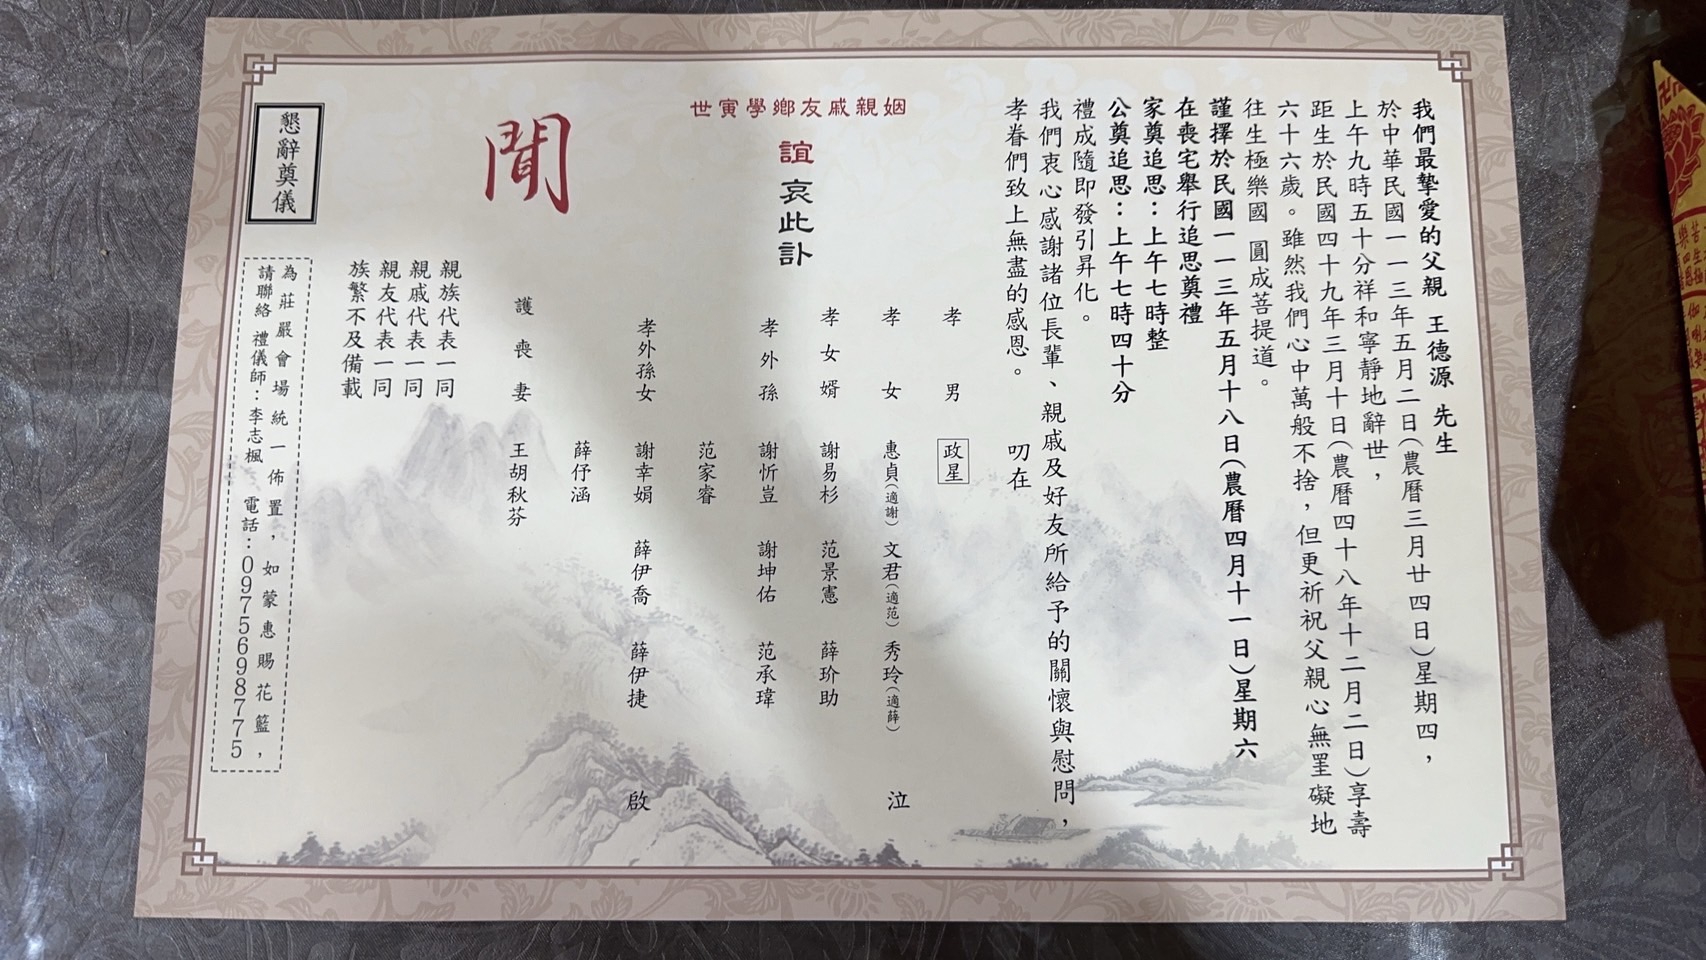 我們最摯愛的父親 王德源 先生
於中華民國一一三年五月二日(農曆三月廿四日)星期四，
上午九時五十分祥和寧靜地辭世，
距生於民國四十九年三月十日(農曆四十八年十二月二日)享壽
六十六歲。雖然我們心中萬般不捨，但更祈祝父親心無罣礙地
往生極樂國 圓成菩提道。
謹擇於民國一一三年五月十八日(農曆四月十一日)星期六
在喪宅舉行追思奠禮
家奠追思：上午七時整
公奠追思：上午七時四十分
禮成隨即發引昇化。
我們衷心感謝諸位長輩、親戚及好友所給予的關懷與慰問，
孝眷們致上無盡的感恩。 叨在
姻親戚友鄉學寅世
誼哀此訃
聞
孝男 政星
孝女 惠貞(適謝) 文君(適范) 秀玲(適薛)
孝女婿 謝易杉 范景憲 薛玠助
孝外孫 謝忻豈 謝坤佑 范承瑋
范家睿
孝外孫女 謝幸娟 薛伊喬 薛伊捷
薛伃涵
護喪妻 王胡秋芬
泣
啟
親族代表一同
親戚代表一同
親友代表一同
族繁不及備載
懇辭奠儀
為莊嚴會場統一佈置，如蒙惠賜花籃，
請聯絡 禮儀師：李志楓 電話：0975698775